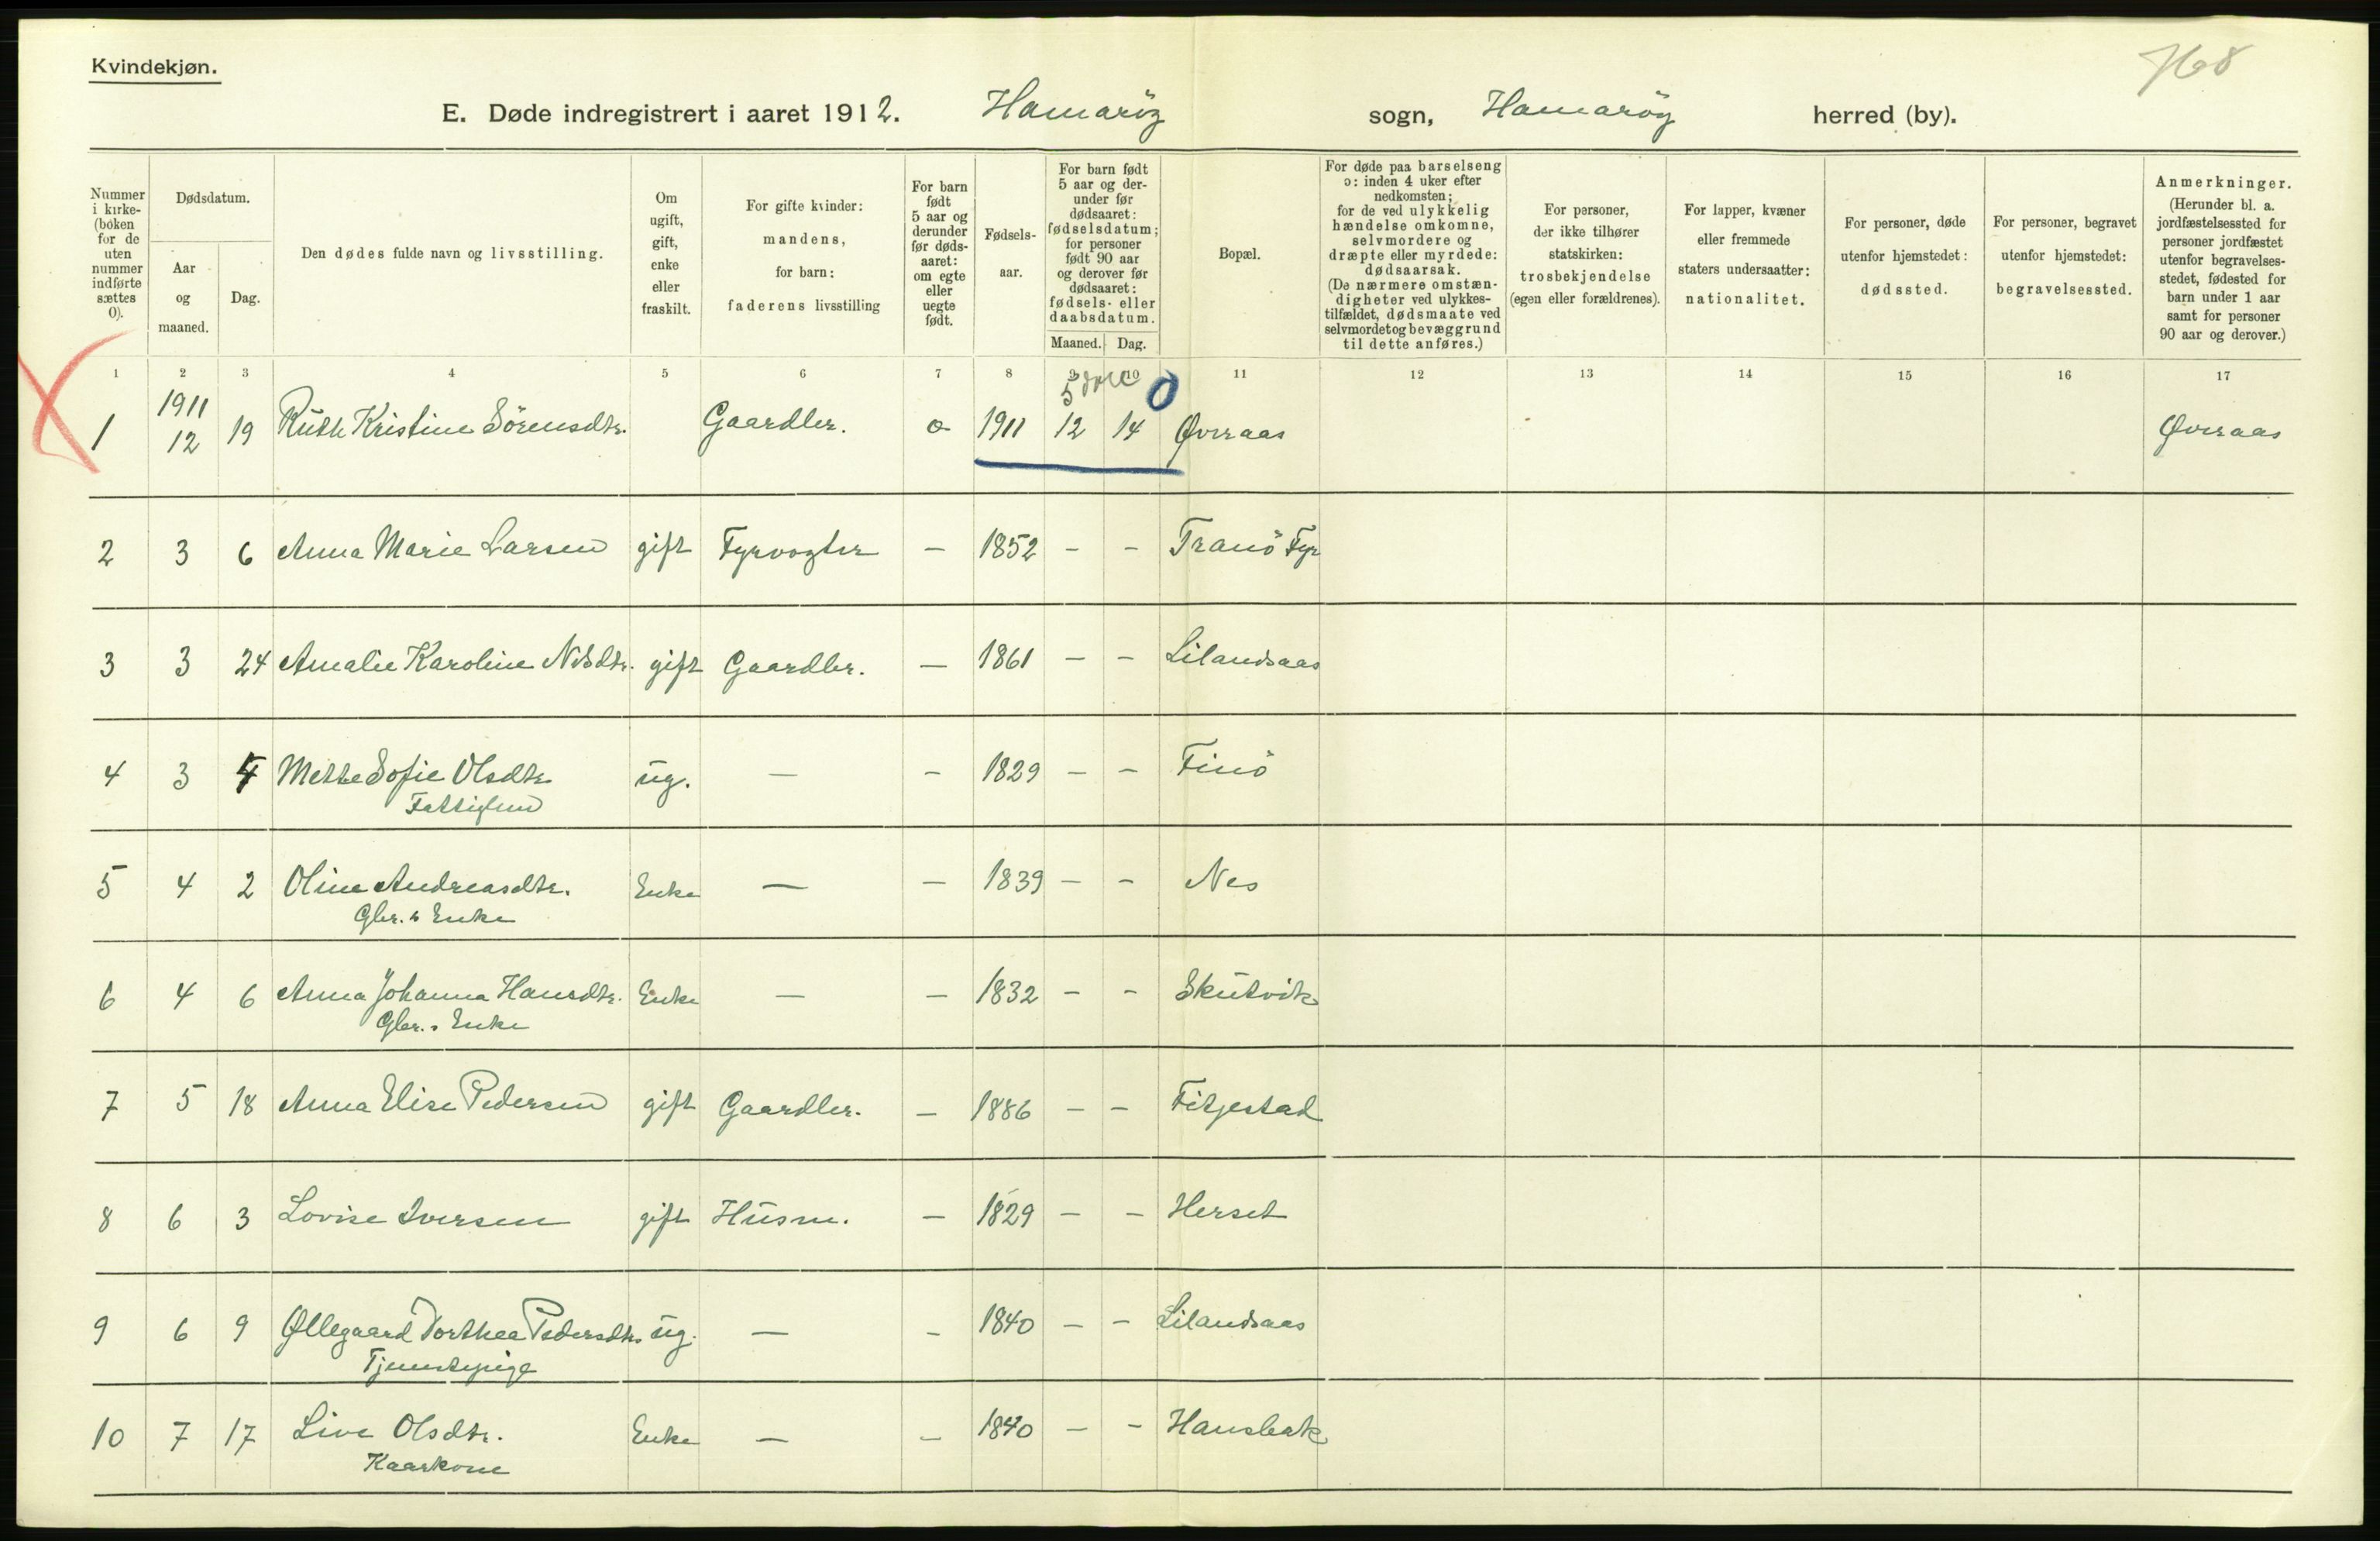 768
Kvindekjøn.
E. Døde indregistrert i aaret 1912. Hamarøy sogn, Hamarøy herred (by).
Nummer i kirke- (boken for de uten nummer indførte sættes 0).
Dødsdatum.
Aar og maaned.
Dag.
Den dødes fulde navn og livsstilling.
Om ugift, gift, enke eller fraskilt.
For gifte kvinder: mandens, for barn: faderens livsstilling
For barn født 5 aar og derunder før døds- aaret: om egte eller uegte født.
Fødsels- aar.
For barn født 5 aar og der- under før dødsaaret: fødselsdatum; for personer født 90 aar og derover før dødsaaret: fødsels- eller daabsdatum.
Maaned. Dag.
Bopæl.
For døde paa barselseng ɔ: inden 4 uker efter nedkomsten; for de ved ulykkelig hændelse omkomne, selvmordere og dræpte eller myrdede: dødsaarsak. (De nærmere omstæn- digheter ved ulykkes- tilfældet, dødsmaate ved selvmord et og bevæggrund til dette anføres.)
For personer, der ikke tilhører statskirken: trosbekjendelse (egen eller forældrenes).
For lapper, kvæner eller fremmede staters undersaatter: nationalitet.
For personer, døde utenfor hjemstedet: dødssted.
For personer, begravet utenfor hjemstedet: begravelsessted.
Anmerkninger. (Herunder bl. a. jordfæstelsessted for personer jordfæstet utenfor begravelses- stedet, fødested for barn under 1 aar samt for personer 90 aar og derover.)
1 2 3 4 5 6 7 8 9 10 11 12 13 14 15 16 17
5 0
1 1911 12 19 Ruth Kristine Sörensdtr. Gaardbr. 1911 12 14 Øveraas Øveraas
2 3 6 Anna Marie Larsen gift Fyrvogter – 1852 – – Tranö Fyr
3 3 24 Amalie Karoline Nilsdtr. gift Gaardbr. – 1861 – – Lilandsaas
4 3 4 Mette Sofie Olsdtr ug. – – 1829 – – Finö
Fattiglem
5 4 2 Oline Andreasdtr. Enke – – 1839 – – Nes
Gbr.s Enke
6 4 6 Anna Johanna Hansdtr. Enke – – 1832 – – Skutvik
Gbr.s Enke
7 5 18 Anna Elise Pedersen gift Gaardbr. – 1886 – – Fitjestad
8 6 3 Lovise Iversen gift Husm. – 1829 – – Herset
9 6 9 Øllegaard Dorthea Pedersdtr ug. – – 1840 – – Lilandsaas
Tjenestepige
10 7 17 Live Olsdtr. Enke – – 1840 – – Hansbak
Kaarkone